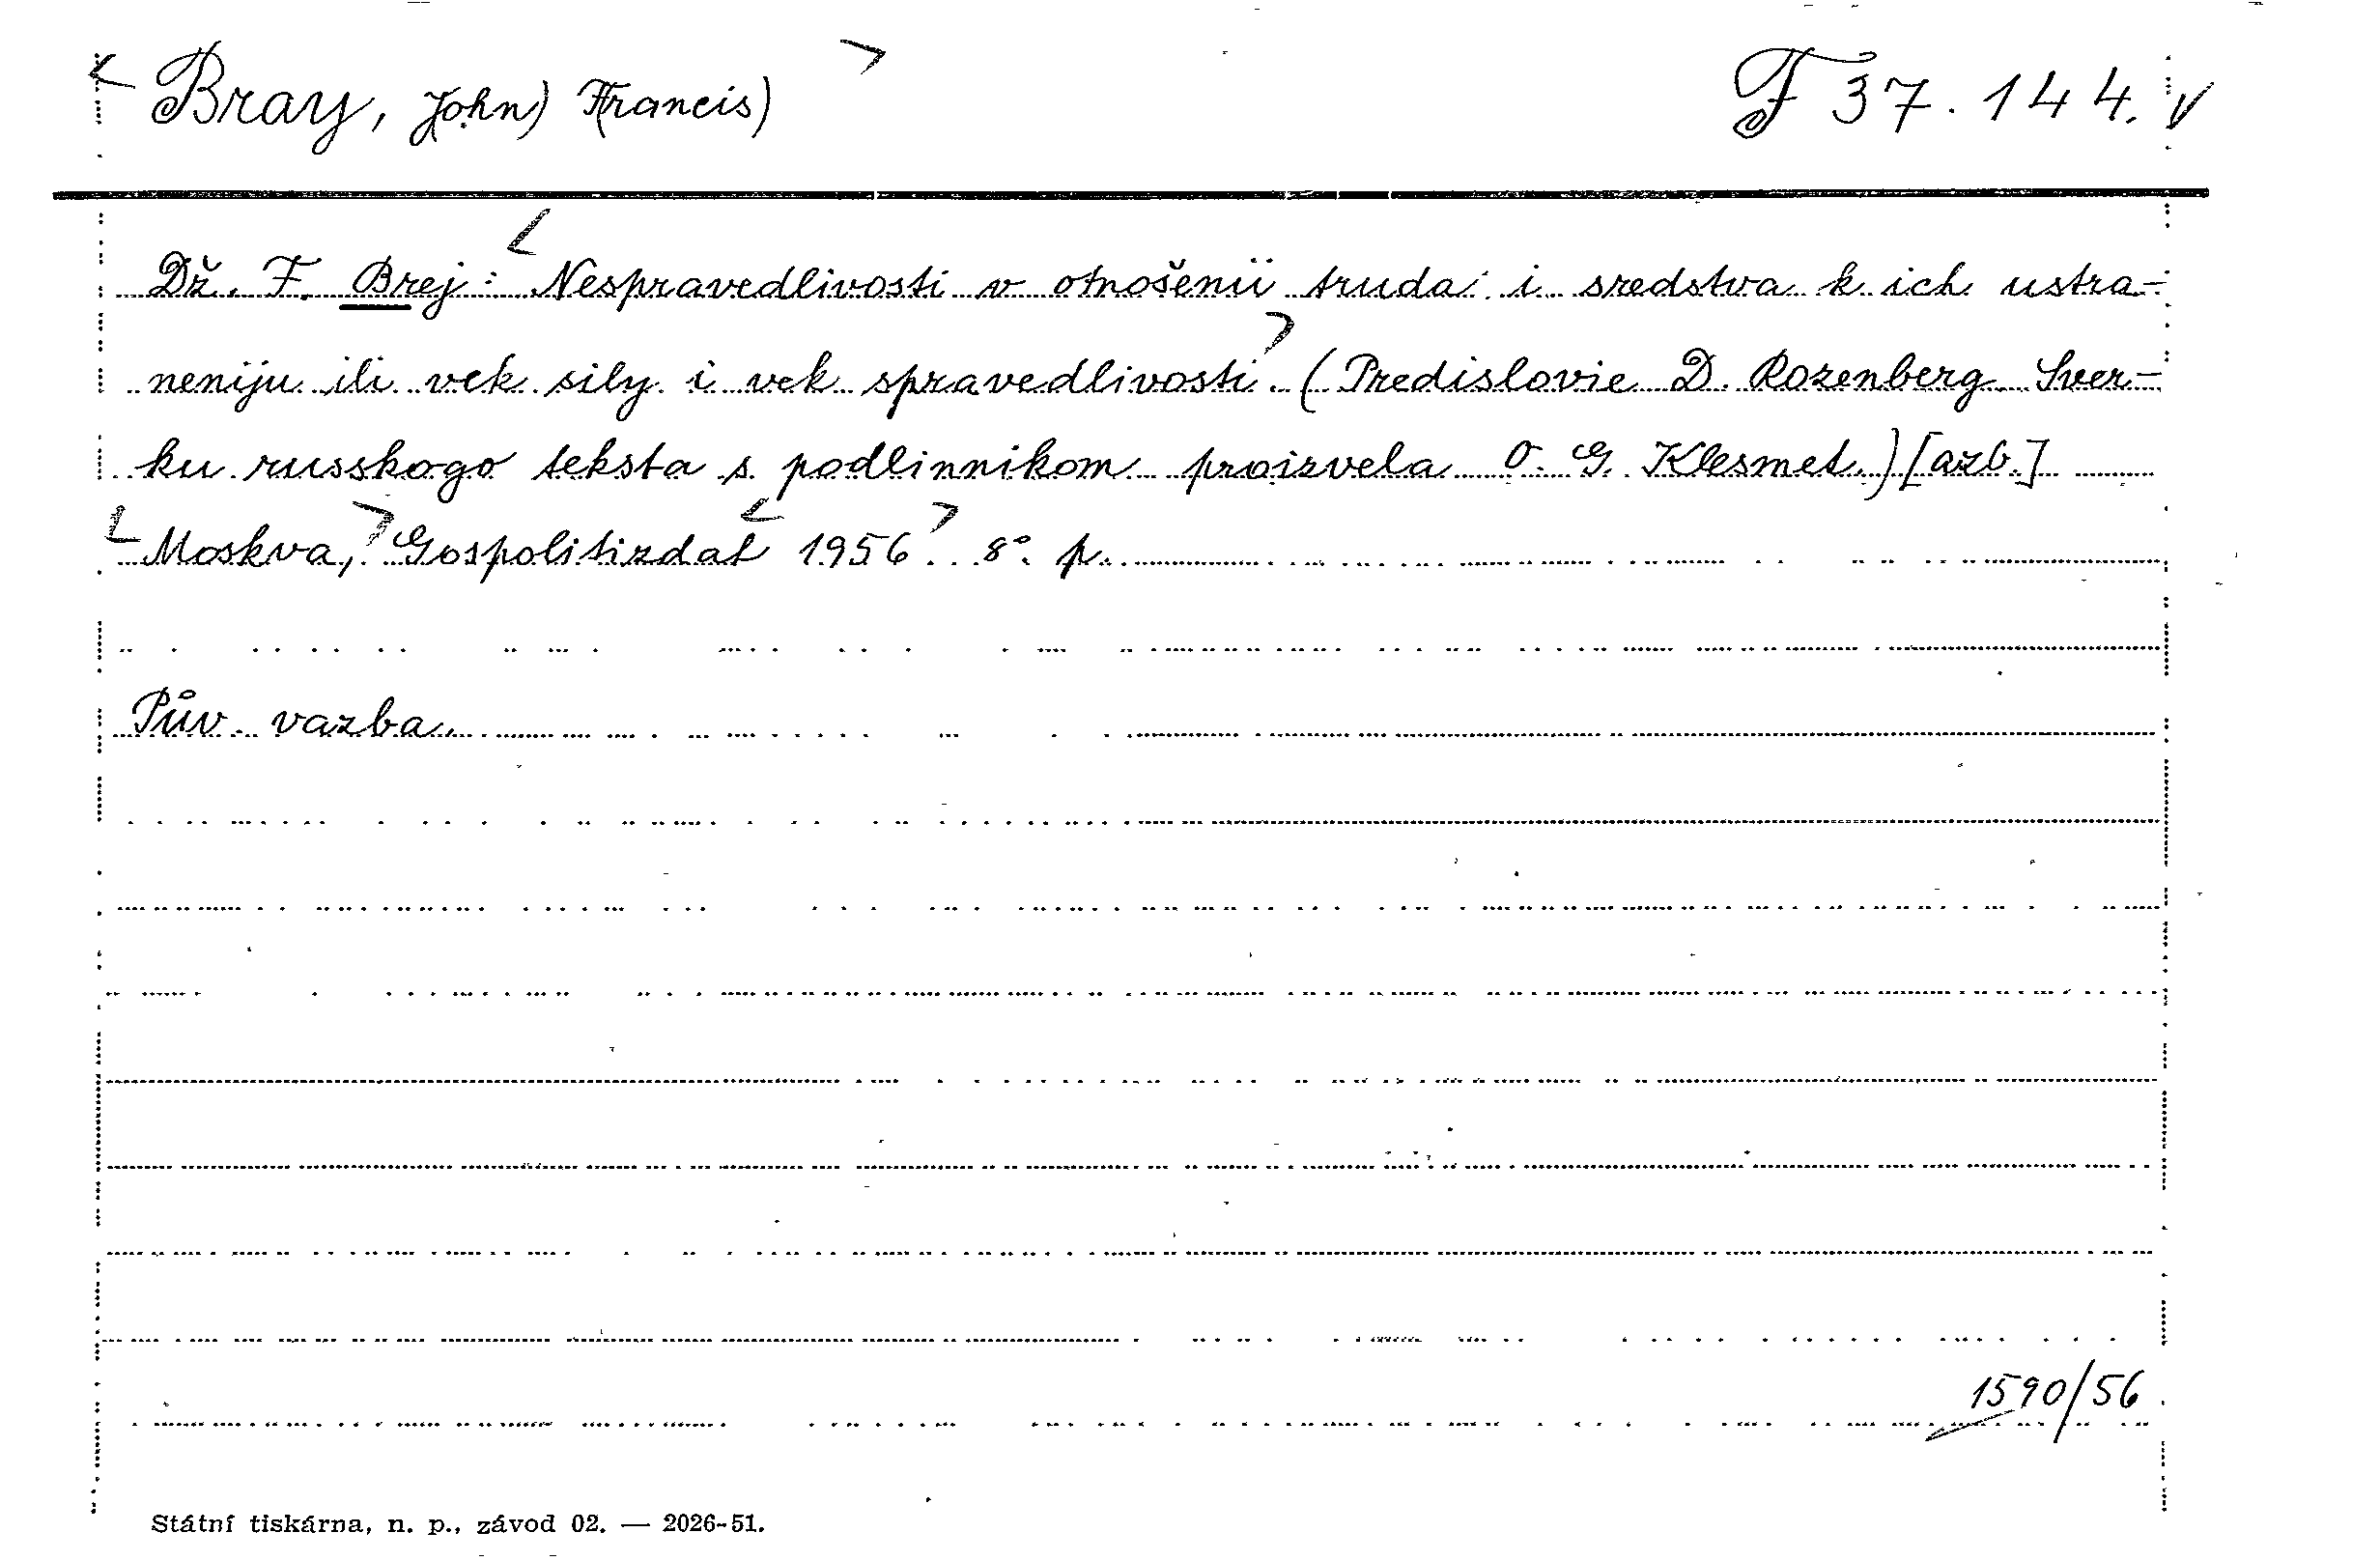 Bray, J(ohn) F(rancis)
F 37.144.
Dž. F. Brej: Nespravedlivosti v otnošenii truda i sredstva k ich ustra-
neniju ili vek sily i vek spravedlivosti. (Predislovie D. Rozenberg. Sver-
ku russkogo teksta s podlinnikom proizvela O. G. Klesmet.) [azb.]
Moskva, Gospolitizdat 1956. 8°. p.
Pův. vazba.
1590/56
Státní tiskárna, n. p., závod 02. — 2026-51.